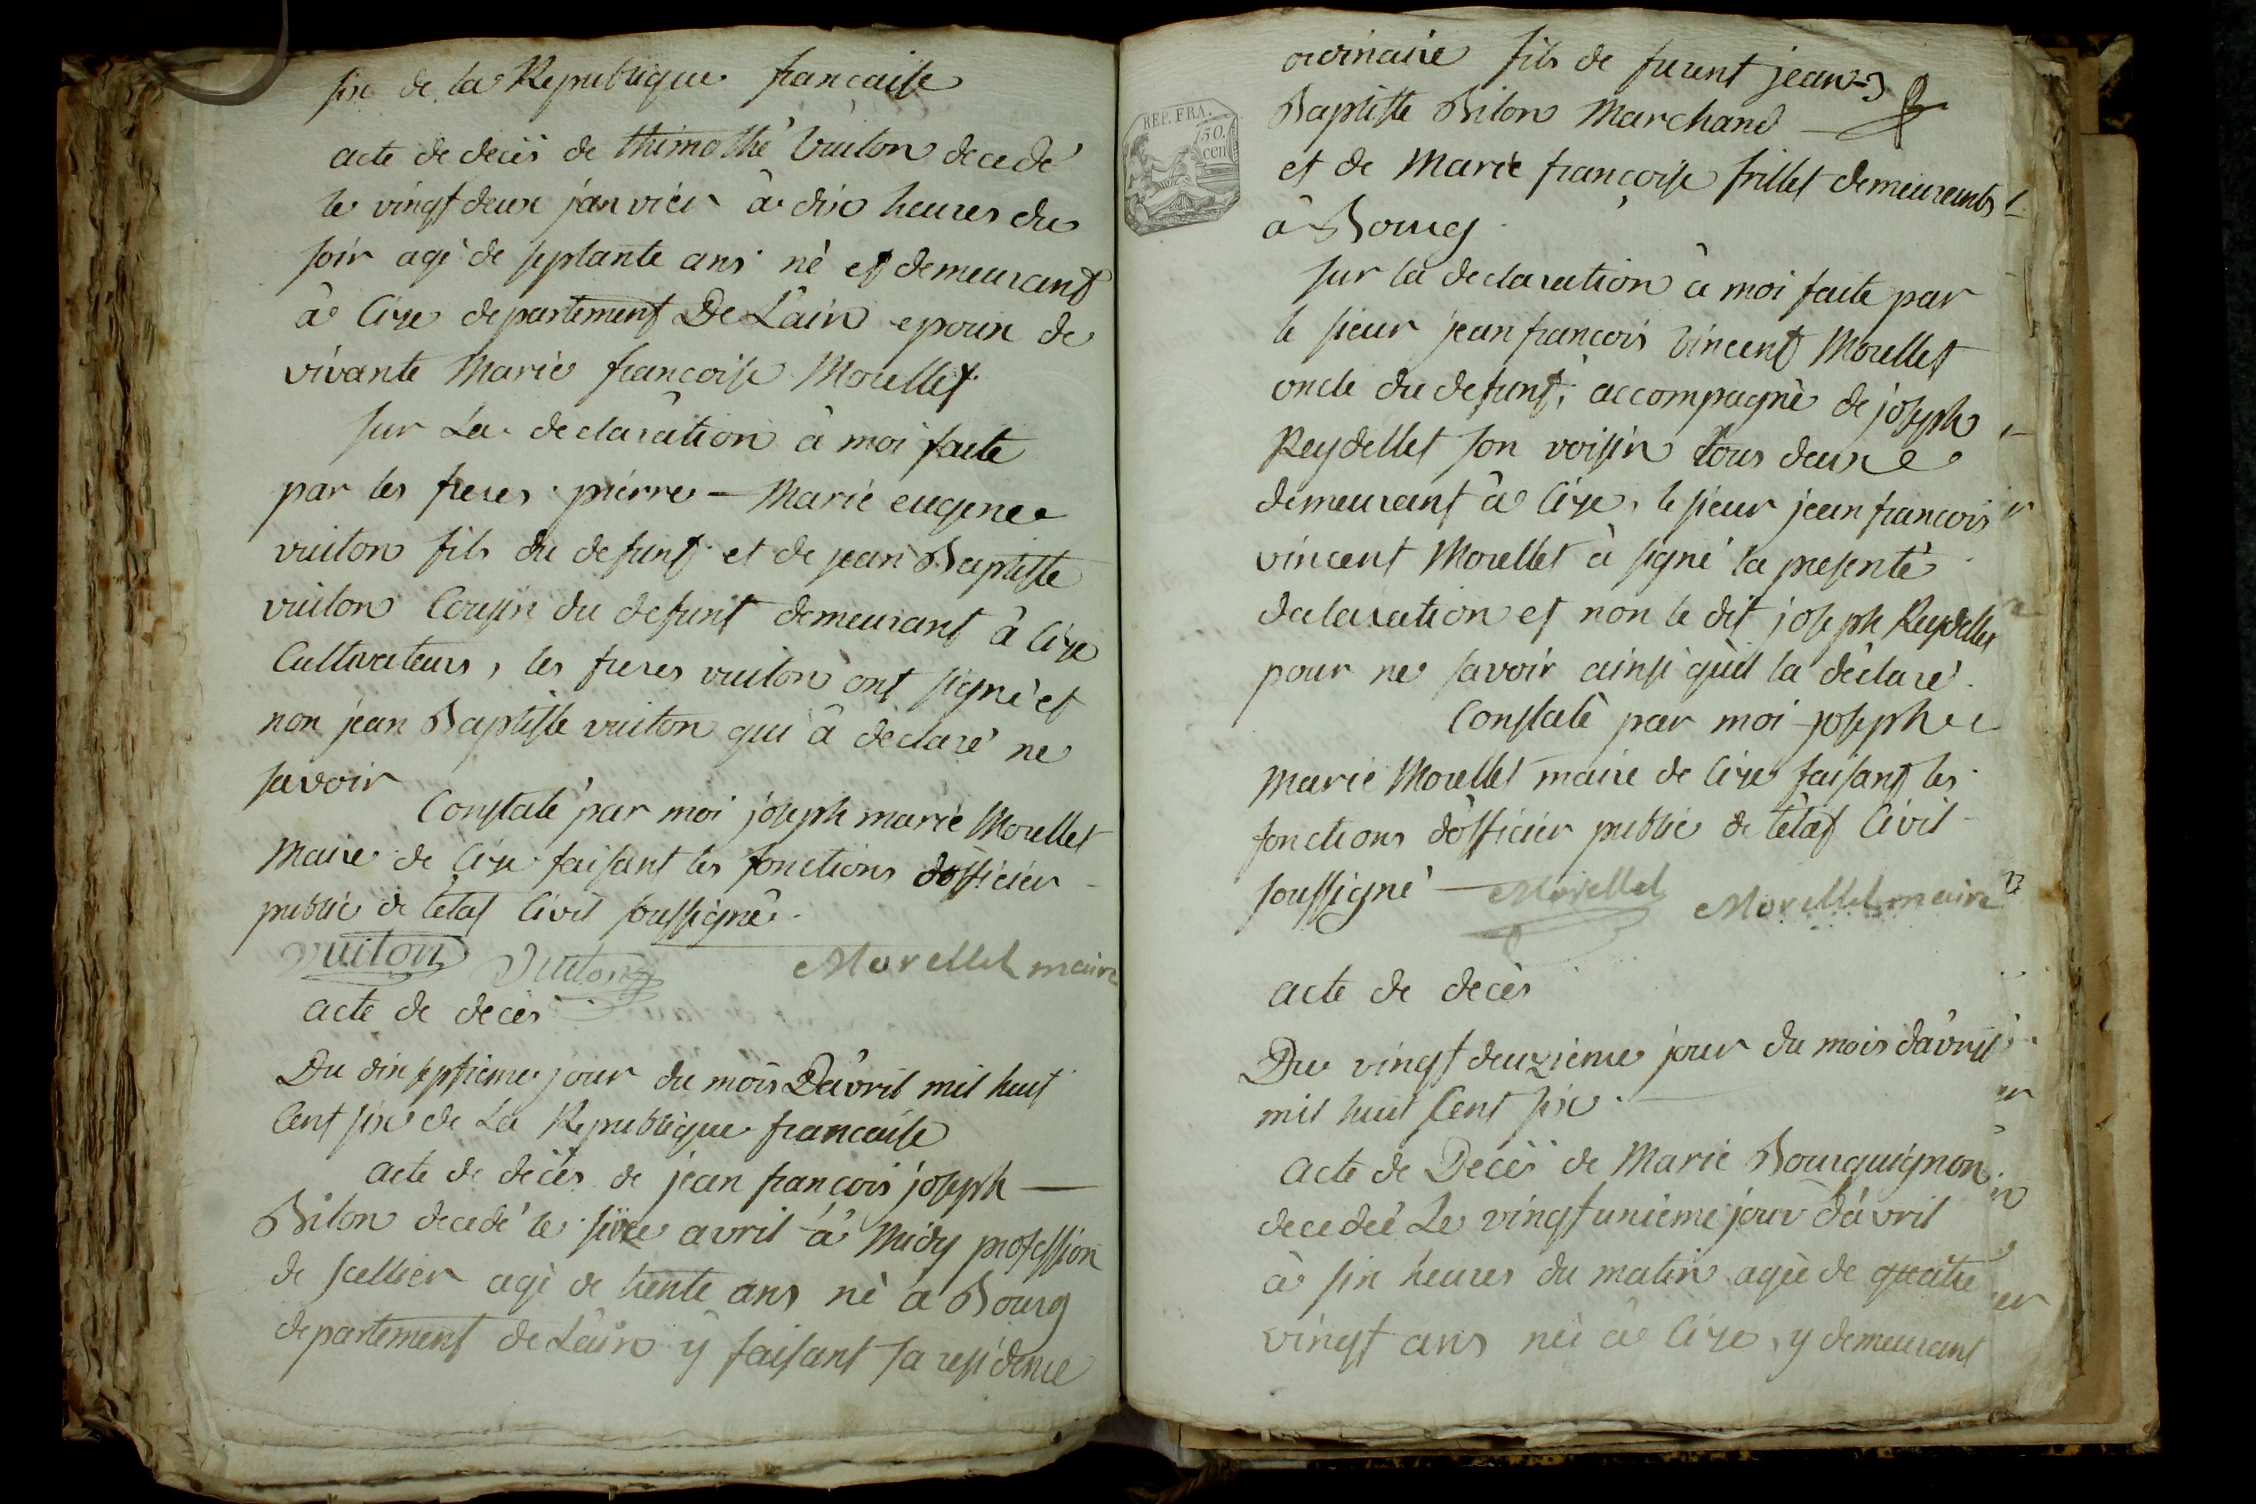 six de la Republique francaise
acte de décés de thimothé Vuiton decedé
le vingt deux janvier à dix heures du
soir agé de septante ans né et demeurant
à Cize departement De L'ain epoux de
vivante Marie francoise Morellet
sur La declaration à moi faite
par les freres pierre - Marie eugene
vuiton fils du defunt et de jean Baptiste
vuiton Cousin du defunt demeurant à Cize
Cultivateurs, les freres vuiton ont signé et
non jean Baptiste vuiton qui à declaré ne
savoir
Constaté par moi joseph marie Morellet
Maire de Cize faisant les fonctions d'officier
public de l'état Civil soussigné.
Vuiton Vuiton Morellet maire
acte de décés
Du dix septieme jour du mois D'avril mil huit
Cent six de La Republique francaise
acte de décés de jean françois joseph —
Bilon decedé le sixe avril à Midy profession
de sellier agé de trente ans né à Bourg
departement de L'ain y faisant sa residence
ordinaire fils de furent jean
REP. FRA.
50.
cen
Baptiste Bilon Marchand —
et de Marie françoise frillet demeurants
à Bourg.
sur la declaration à moi faite par
le sieur jean francois Vincent Morellet
oncle du defunt, accompagné de joseph
Reydellet son voisin tous deux
demeurant à Cize, le sieur jean francois
vincent Morellet à signé la presente
declaration et non le dit joseph Reydellet
pour ne savoir ainsi qu'il la déclaré.
Constaté par moi joseph
Marie Morellet maire de Cize faisant les
fonctions d'officier public de l'état Civil -
soussigné — Morellet Morellet maire
acte de decès
Du vingt deuzieme jour du mois d'avril
mil huit Cent six. —
acte de Decés de Marie Bourguignon
decedeé Le vingt unieme jour d'avril
à six heures du matin ageè de quatre
vingt ans neè à Cize, y demeurant